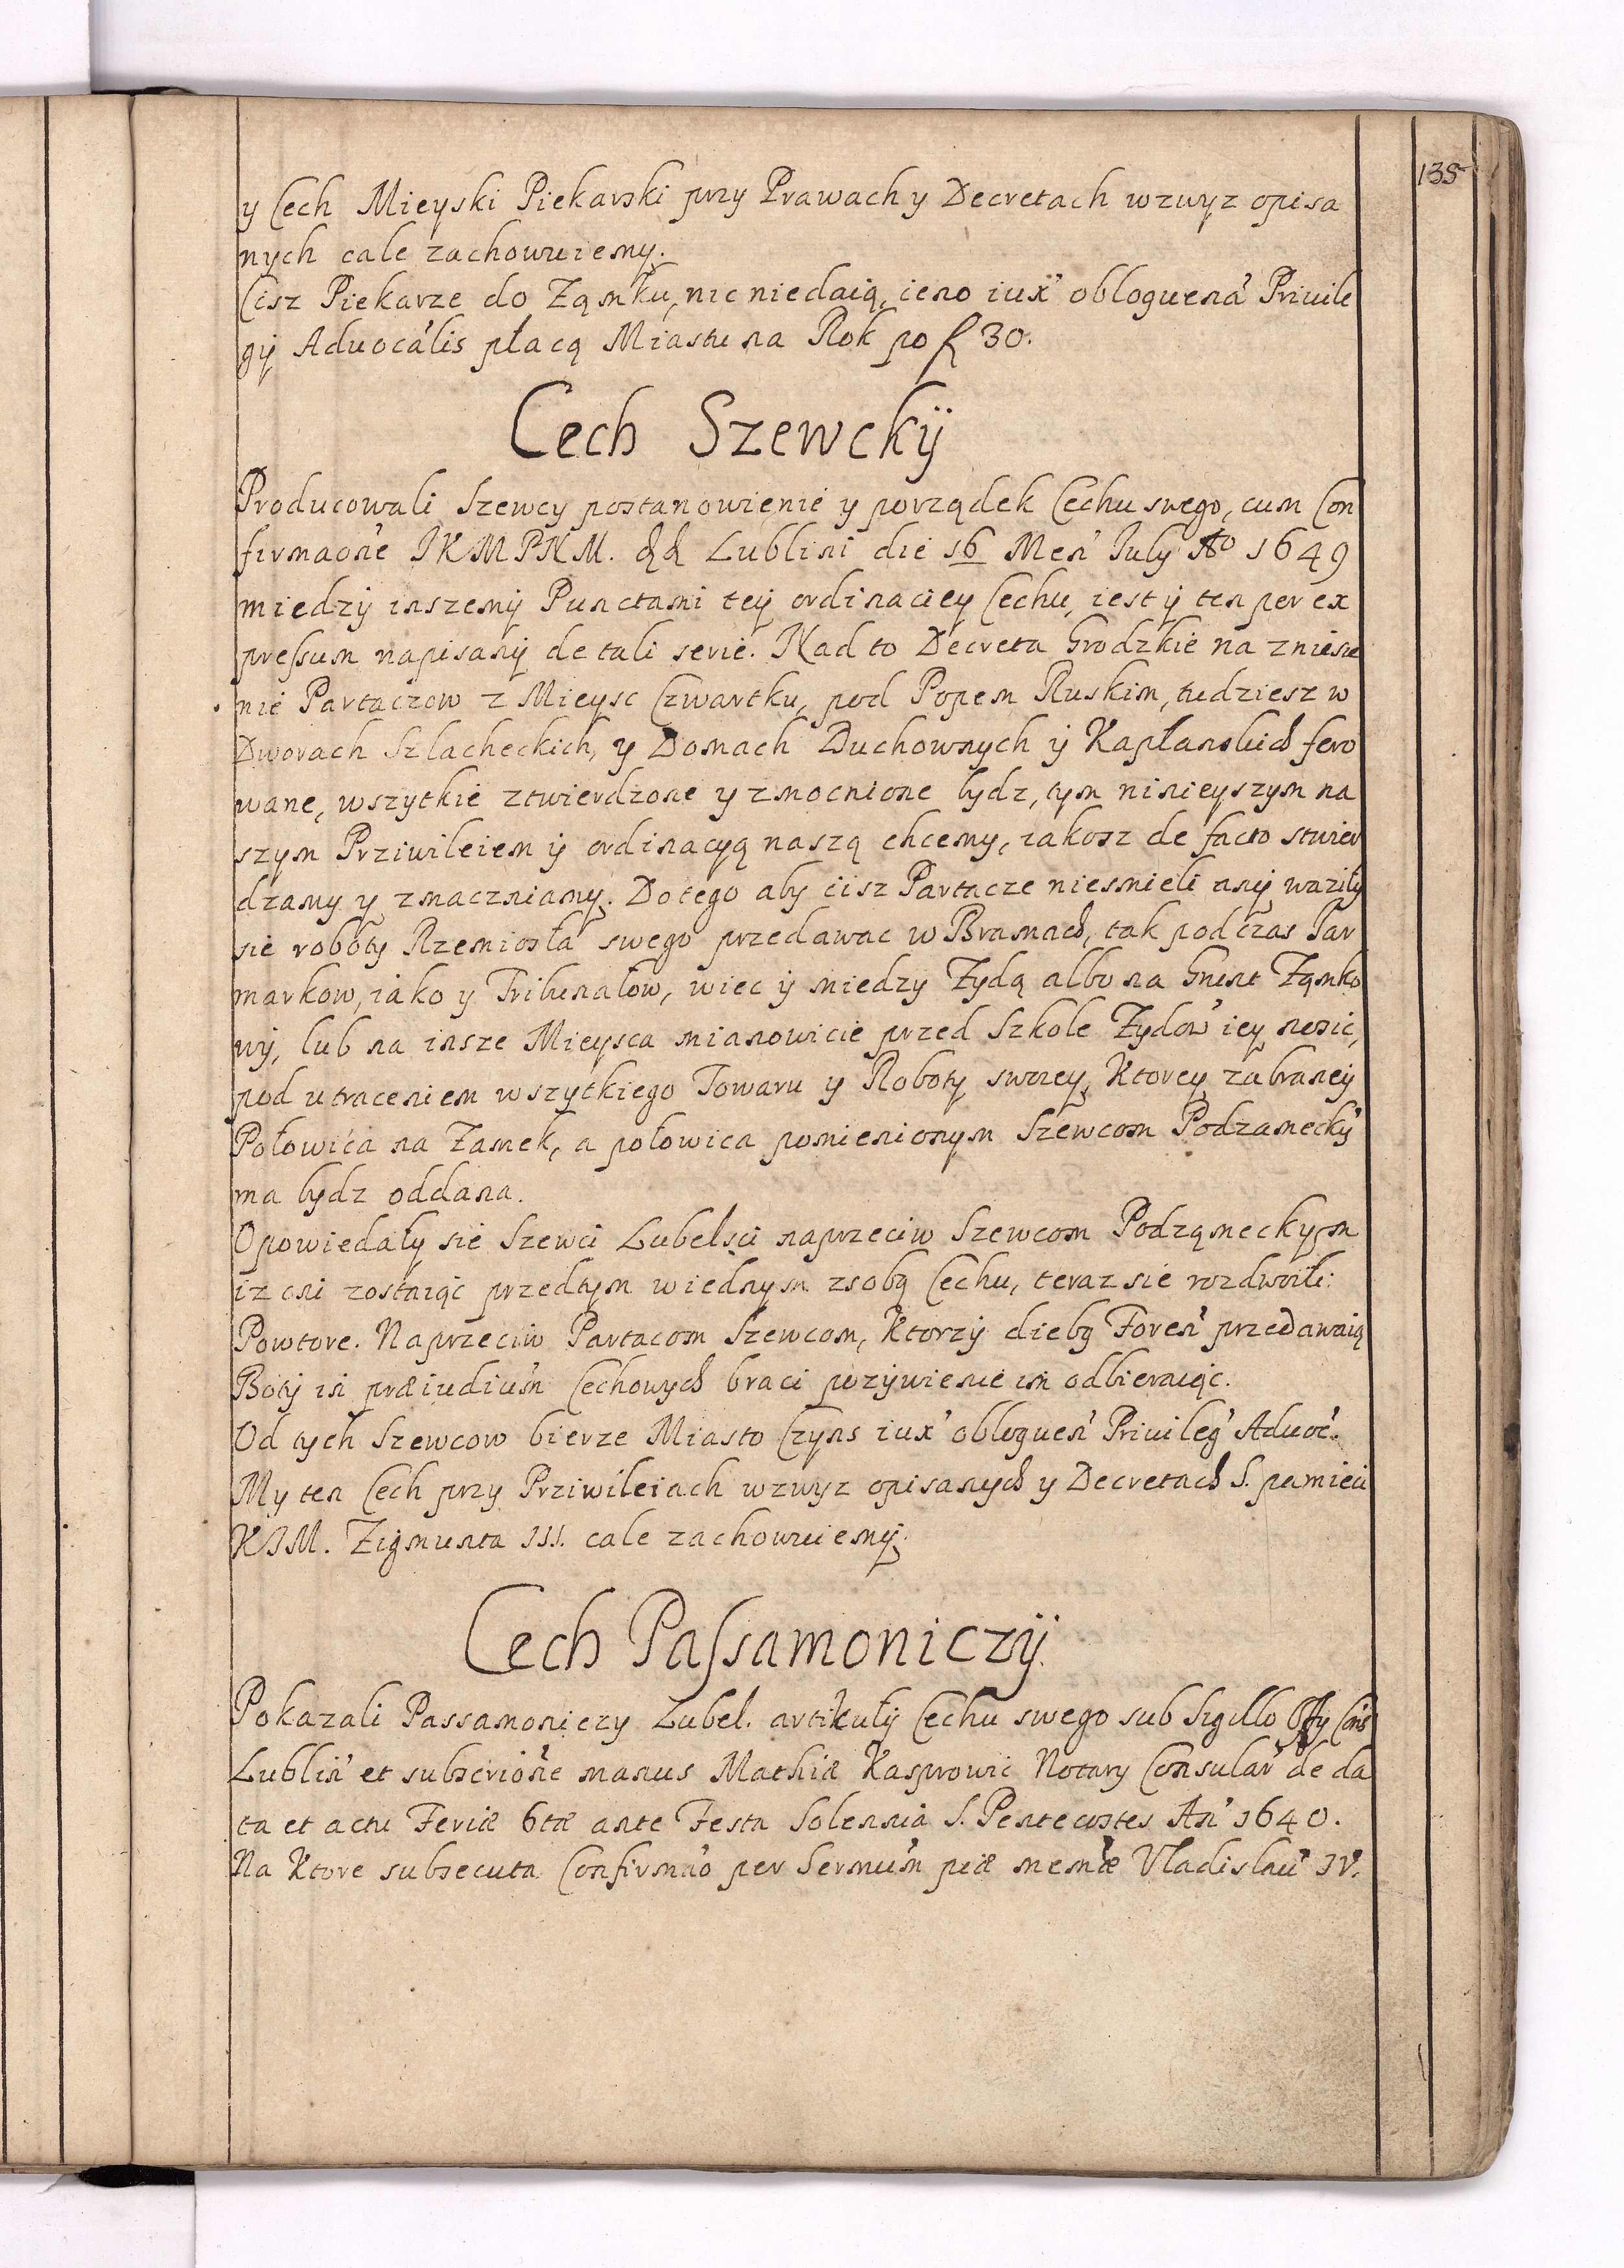 135
y Cech Mieyski Piekarski przy Prawach y Decretach wzwyz opisa
nych cale zachowuiemy.
Cisz Piekarze do Ząmku, nic niedaią, ieno iux' obloquenã Priuile
gÿ Aduocãlis płacą Miastu na Rok po f 30.
Cech Szewckÿ
Producowali Szewcy postanowięnie y porządek Cechu swego, cum Con
firmaoñe JKMPNM. Lublini die 16 Meń July Ao 1649
miedzÿ inszemÿ Punctami teÿ ordinacieÿ Cechu, iest ÿ ten per ex
pressum napisanÿ de tali serie. Nad to Decreta Grodzkie na zniesie
nie Partaczow z Mieysc Czwartku, pod Popem Ruskim, tudziesz w
Dworach Szlacheckich, y Domach Duchownych ÿ Kapłanskich fero
wane, wszytkie ztwierdzone y zmocnione bydz, tym ninieyszym na
szym Prziwileiem ÿ ordinacyą naszą chcemy, iakosz de facto stwier
dzamy y zmaczniamy. Do tego aby cisz Partacze niesmieli anÿ wazilÿ
sie roboty Rzemiosła swego przedawac w Bramach, tak pod czas Jar
markow, iako y Tribunałow, wiec ÿ miedzy Zydą albo na Grunt Ząmko
wÿ, lub na insze Mieysca mianowicie przed Szkole Zydow' iey nosic,
pod utraceniem wszytkiego Towaru y Roboty swoiey, Ktorey zabraneÿ
Połowica na Zamek, a połowica pomienionym Szewcom Podzameckÿ
ma bydz oddana.
Opowiedały sie Szewci Lubelsci naprzeciw Szewcom Podząmeckym
iz oni zostaiąc przedtym wiednym zsobą Cechu, teraz sie rozdwoili:
Powtore. Naprzeciw Partacom Szewcom, Ktorzÿ diebg Foreń przedawaią
Botÿ in præiudium̃ Cechowych braci pozÿwienie im odbieraiąc.
Od tych Szewcow bierze Miasto Czyns iux' obloqueń Priuileg' Aduoc'.
My ten Cech przy Prziwileiach wzwyz opisanych y Decretach S. pamieci
KJM. Zigmunta III. cale zachowuiemÿ.
Cech Passamoniczÿ.
Pokazali Passamoniczy Lubel. artikułÿ Cechu swego sub Sigillo Cons
Lubliń et subscrioñe manus Mathiæ Kasprowic Notary Consular' de da
ta et actu Feriæ 6tæ ante Festa Solennia S. Pentecostes Añ 1640.
Na Ktore subsecuta Confirmaõ per Sermum̃ piæ memæ Vladislau' IV.